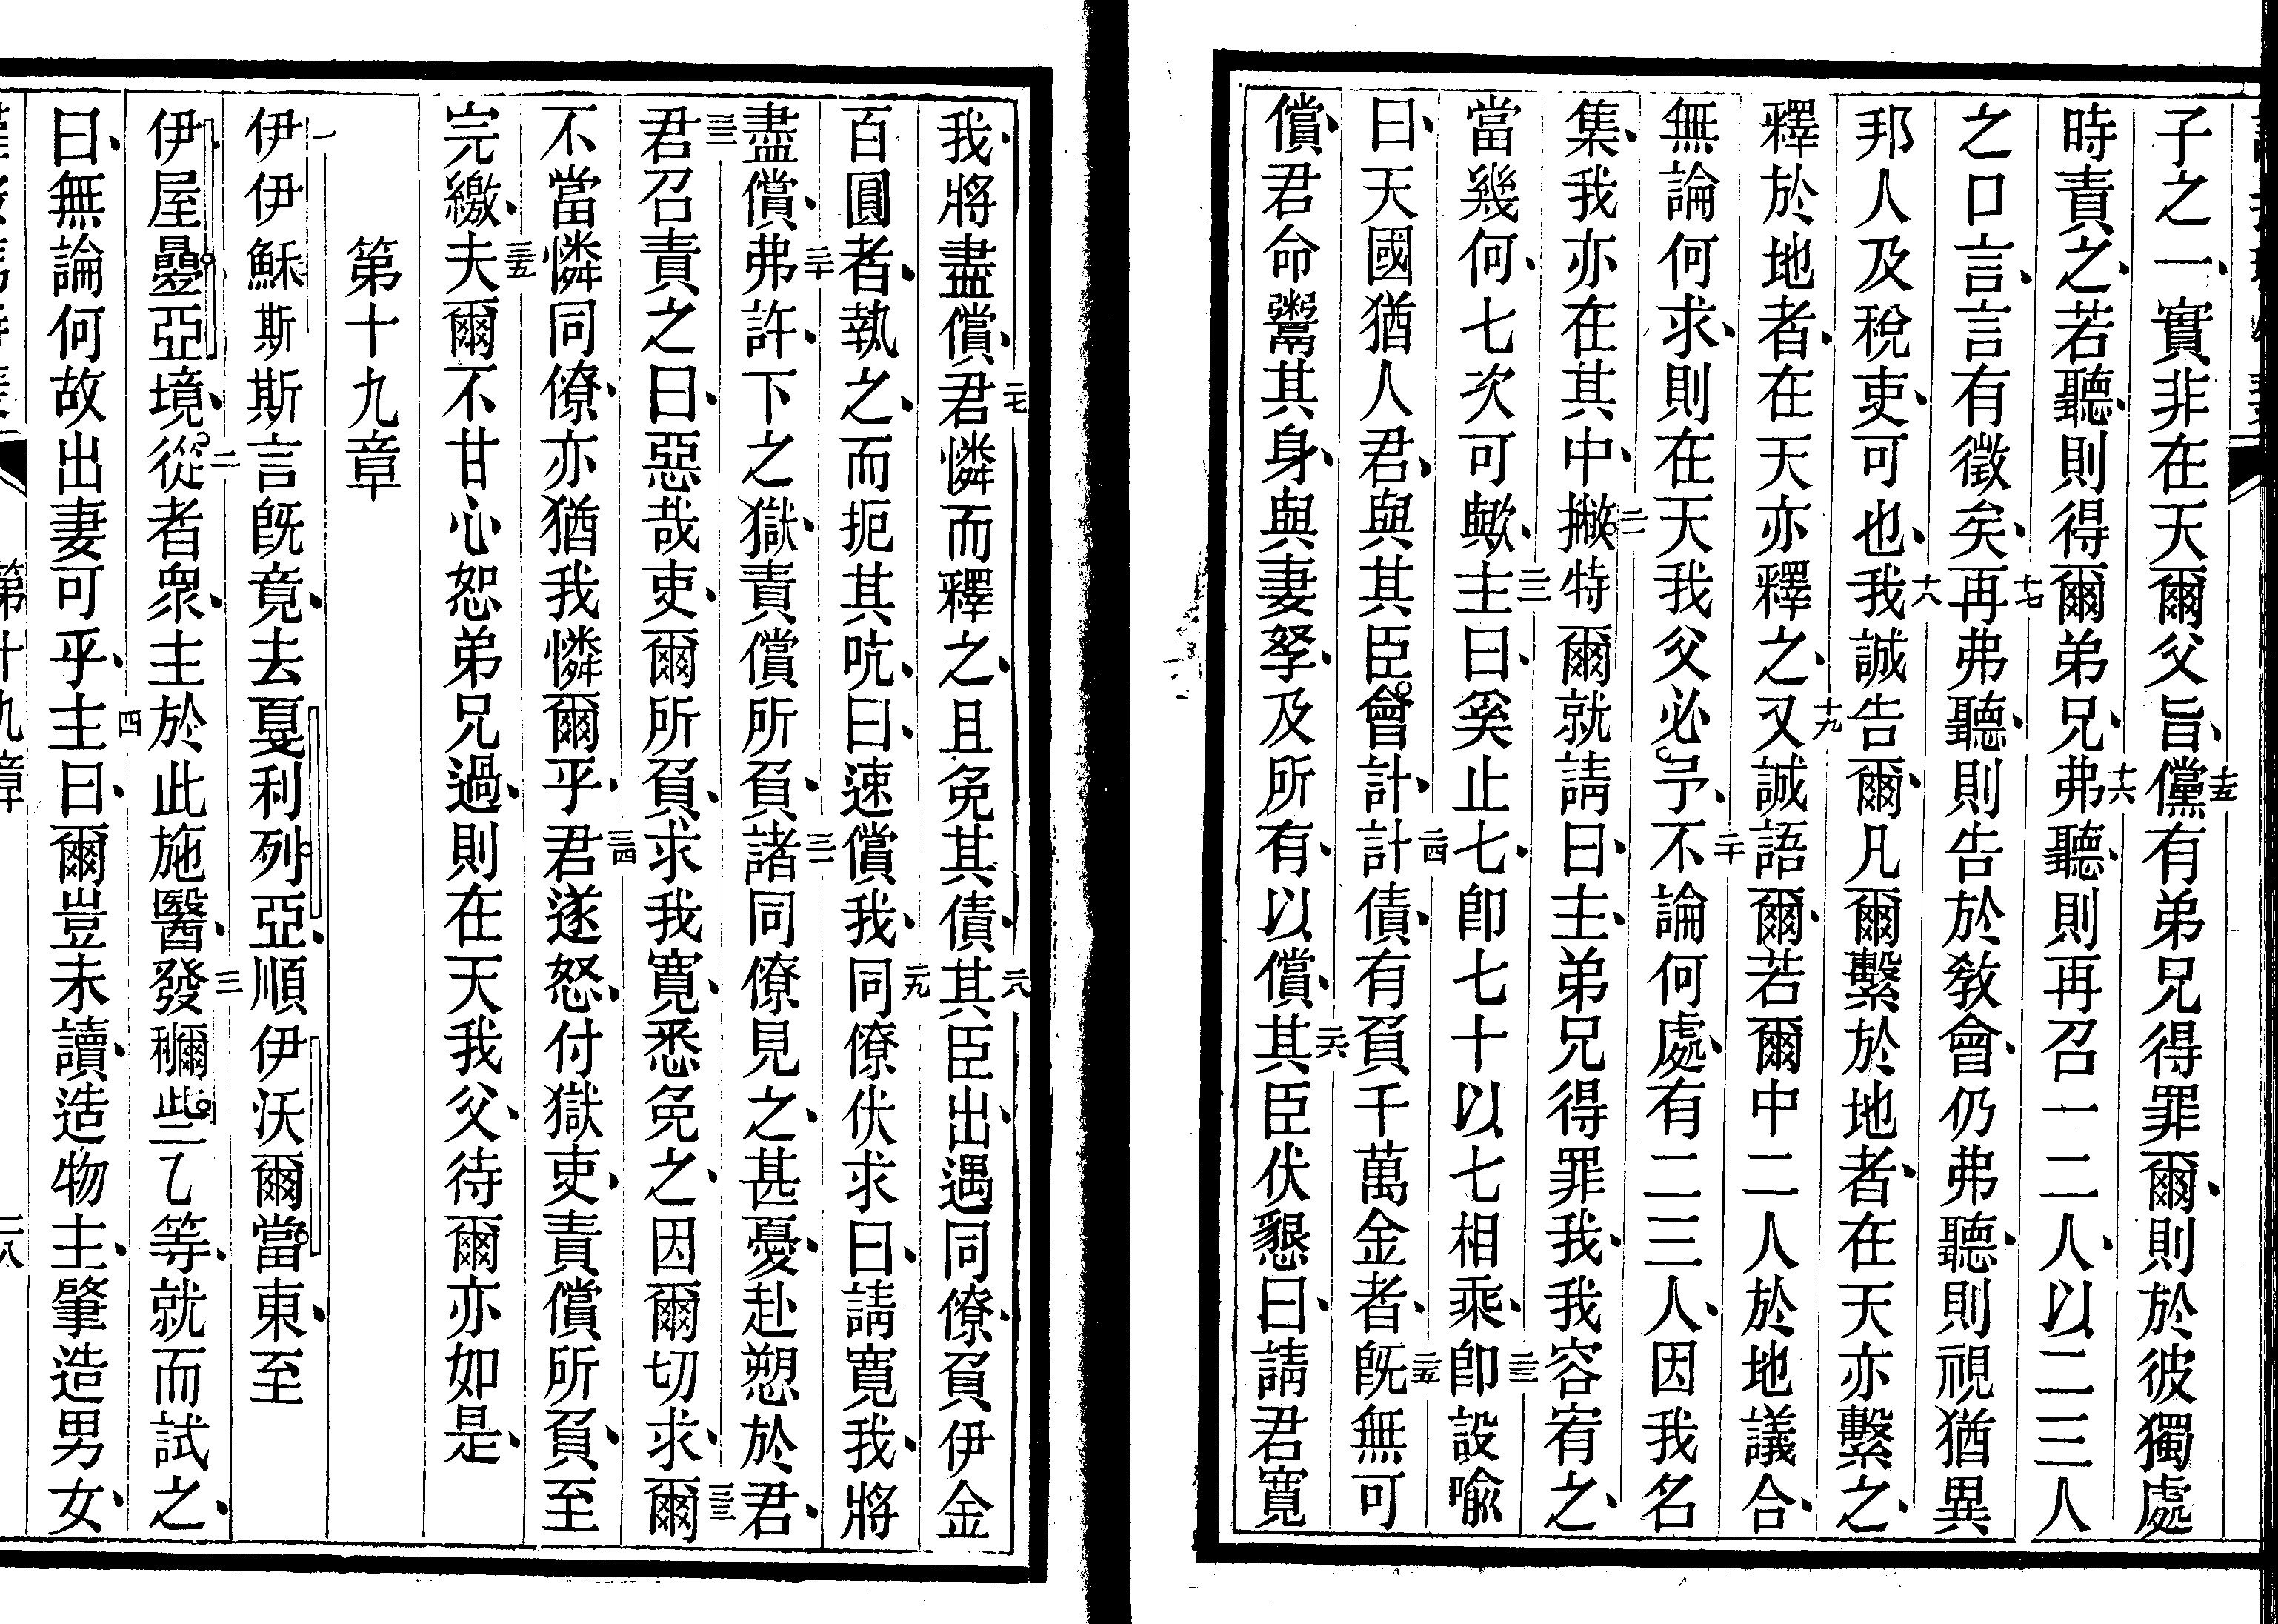 子之一實非在天爾父旨十五儻有弟兄得罪爾則於彼獨處
時責之若聽則得爾弟兄十六弗聽則再召一二人以二三人
之口言言有徵矣十七再弗聽則告於教會仍弗聽則視猶異
邦人及稅吏可也十八我誠告爾凡爾繫於地者在天亦繫之
釋於地者在天亦釋之十九又誠語爾若爾中二人於地議合
無論何求則在天我父必予二十不論何處有二三人因我名
集我亦在其中二一撇特爾就請曰主弟兄得罪我我容宥之
當幾何七次可歟二二主曰奚止七七即七十以七相乘二三即設喩
曰天國猶人君與其臣會計二四計債有負千萬金者二五既無可
償君命鬻其身與妻孥及所有以償二六其臣伏懇曰請君寬
我將盡償二七君憐而釋之且免其債二八其臣出遇同僚負伊金
百圓者執之而扼其吭曰速償我二九同僚伏求曰請寬我將
盡償三十弗許下之獄責償所負三一諸同僚見之甚憂赴愬於君
三二君召責之曰惡哉吏爾所負求我寬悉免之因爾切求三三爾
不當憐同僚亦猶我憐爾乎三四君遂怒付獄吏責償所負至
完繳三五夫爾不甘心恕弟兄過則在天我父待爾亦如是
第十九章
一伊伊穌斯斯言既竟去戛利列亞順伊沃爾當東至
伊屋疊亞境二從者衆主於此施醫三發穪些乙等就而試之
曰無論何故出妻可乎四主曰爾豈未讀造物主肇造男女
第十九章